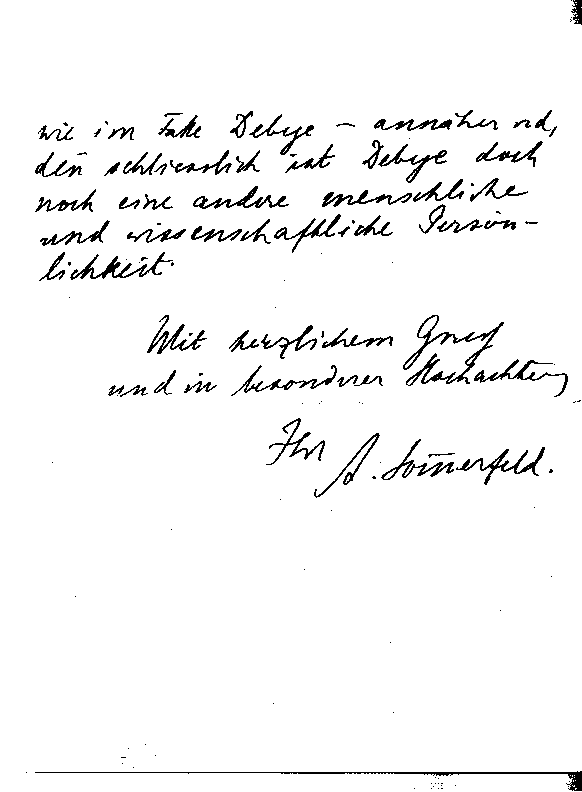 wie im Falle Debye — annähernd,
den̄ schliesslich ist Debye doch
noch eine andere menschliche
und wissenschaftliche Persön-
lichkeit.
Mit herzlichem Gruß
und in besonderer Hochachtung
Ihr
A. Som̄erfeld.